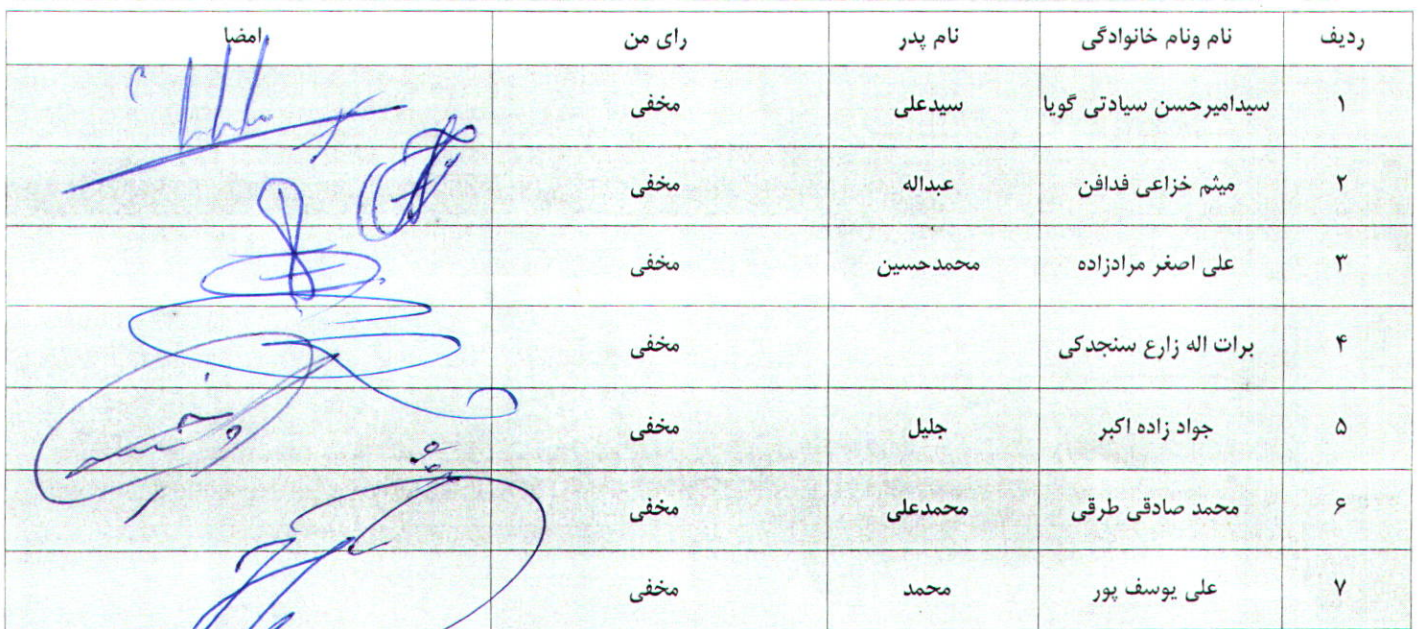 ردیف نام ونام خانوادگی نام پدر رای من امضا
۱ سیدامیرحسن سیادتی گویا سیدعلی مخفی
۲ میثم خزاعی فدافن عبداله مخفی
۳ علی اصغر مرادزاده محمدحسین مخفی
۴ برات اله زارع سنجدکی مخفی
۵ جواد زاده اکبر جلیل مخفی
۶ محمد صادقی طرقی محمدعلی مخفی
۷ علی یوسف پور محمد مخفی